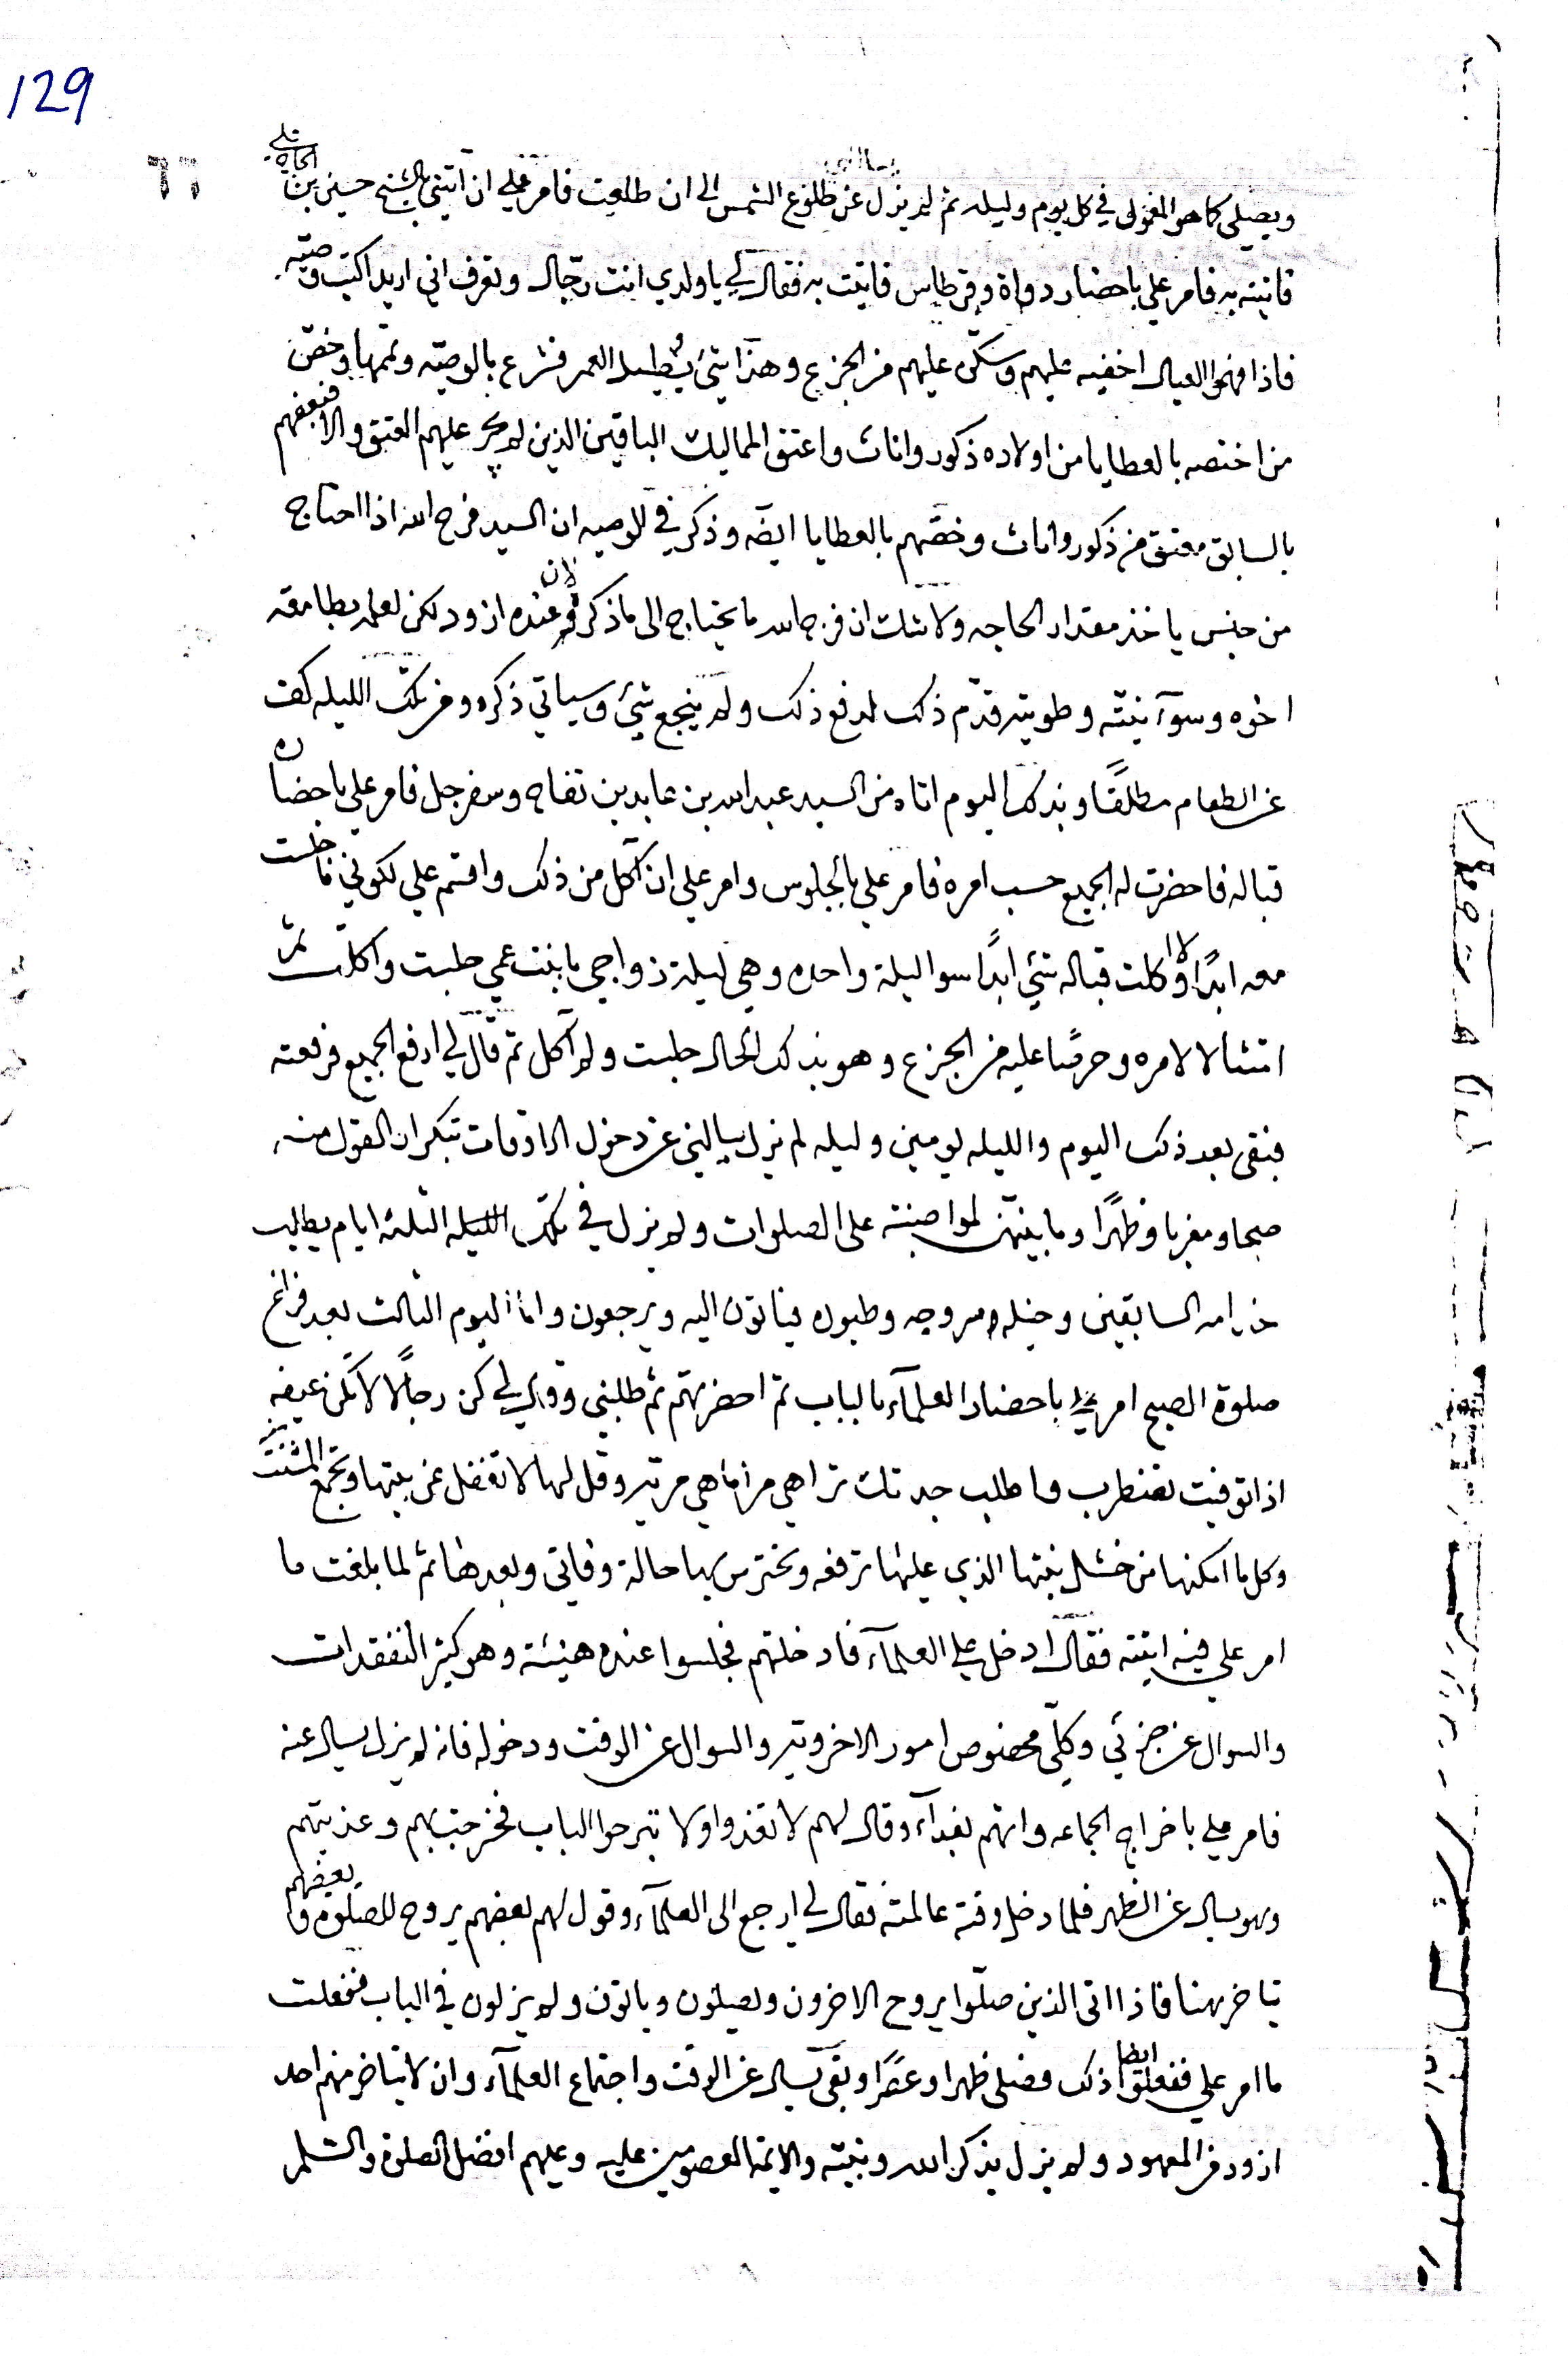 129
٦٦
ويصلي كما هو المعمول في كل يوم وليله ثم لم يزل عن طلوع الشمس الى ان طلعت فامر علي ان آتيني بالشيخ حسين بن
فاتيته به فامر علي باحضار دواة وقرطاس فاتيت به فقال لي يا ولدي انت رجّال وتعرف اني اريد اكتب وصيّه
فاذا فهموا العيال اخفيه عليهم وسكّن عليهم من الجزع وهذا شئ يُطيل العمر فشرع بالوصيّه وتممها وخصّ
من اختصه بالعطايا من اولاده ذكور واناث واعتق المماليك الباقين الذين لم يجر عليهم العتق والا فبعضهم
بالسابق معتق من ذكور واناث وخصّهم بالعطايا ايضًه وذكر في الوصيه ان السيد فرج الله اذا احتاج
من جنس ياخذ مقدار الحاجه ولا شك ان فرج الله ما يحتاج الى ما ذكر لان عنده ازود لكن لعلمه بطامعة
اخوه وسوآ نيته وطويته قدّم ذلك لدفع ذلك ولم ينجع شئ وسياتي ذكره ومن تلك الليله كف
عن الطعام مطلقًا وبذلك اليوم اتاه من السيد عبدالله بن عابدين تفاح وسفرجل فامر علي باحضاره
قباله فاحضرت له الجميع حسب امره فامر علي بالجلوس وامر علي ان آكل من ذلك واقسم علي لكوني ما جلست
معه ابدًا ولا اكلت قباله شئي ابدًا سوا ليلة واحده وهي ليلة زواجي بابنت عمي جلست واكلت ثم
امتثالا لامره وحرصًا عليه من الجزع وهو بذلك الحال جلست ولم آكل ثم قال لي ارفع الجميع فرفعته
فبقى بعد ذلك اليوم والليله يومين وليله لم يزل يسالني عن دخول الاوقات بتكرار القول منه
صبحا ومغربا وظهرًا وما بينهن لمواضبته على الصلوات ولم يزل في تلك الليله الثلثه ايام يطالب
خدامه السابقين وخيله وسروجه وطبوله فياتون اليه ويرجعون واما اليوم الثالث بعد فراغ
صلوة الصبح امر علي باحضار العلمآء بالباب ثم احضرتهم ثم طلبني وقال لي كن رجالًا لا تكن عيفه
اذا توفيت تضطرب واطلب جدتك تراهي مراة ما هي مريه وقل لها لا تغفل عن بيتها وتجمع المشتت
وكل ما امكنها من خشل بيتها الذي عليها ترفعه وتحترس بها حالة وفاتي وبعدها ثم لما بلغت ما
امر علي فيه اتيته فقال ادخل علي العلمآء فادخلتهم فجلسوا عنده هنيئة وهو كثير التفقدات
والسوال عن جزئي وكلّي مخصوص امور الاخرويّه والسوال عن الوقت ودخوله فانه لم يزل يسال عنه
فامر علي باخراج الجماعه واتهم بغدآء وقال لهم لا تغدوا ولا تبرحوا الباب فخرجت بهم وغديتهم
وهو يسال عن الظهر فلما دخل وقته عالمته فقال لي ارجع الى العلمآء وقول لهم بعضهم يروح للصلوة وبعضهم
يتاخر هنا فاذا اتى الذين صلّوا يروح الاخرون ويصلون وياتون ولم يزلون في الباب ففعلت
ما امر علي ففعلوا ايضا ذلك فصلى ظهرا وعصرًا وبقى يسال عن الوقت واجتماع العلمآء وان لا يتاخر منهم احد
ازود من المعهود ولم يزل يذكر الله ونبيّه والائمه المعصومين عليه وعليهم افضل الصلوة والسلم